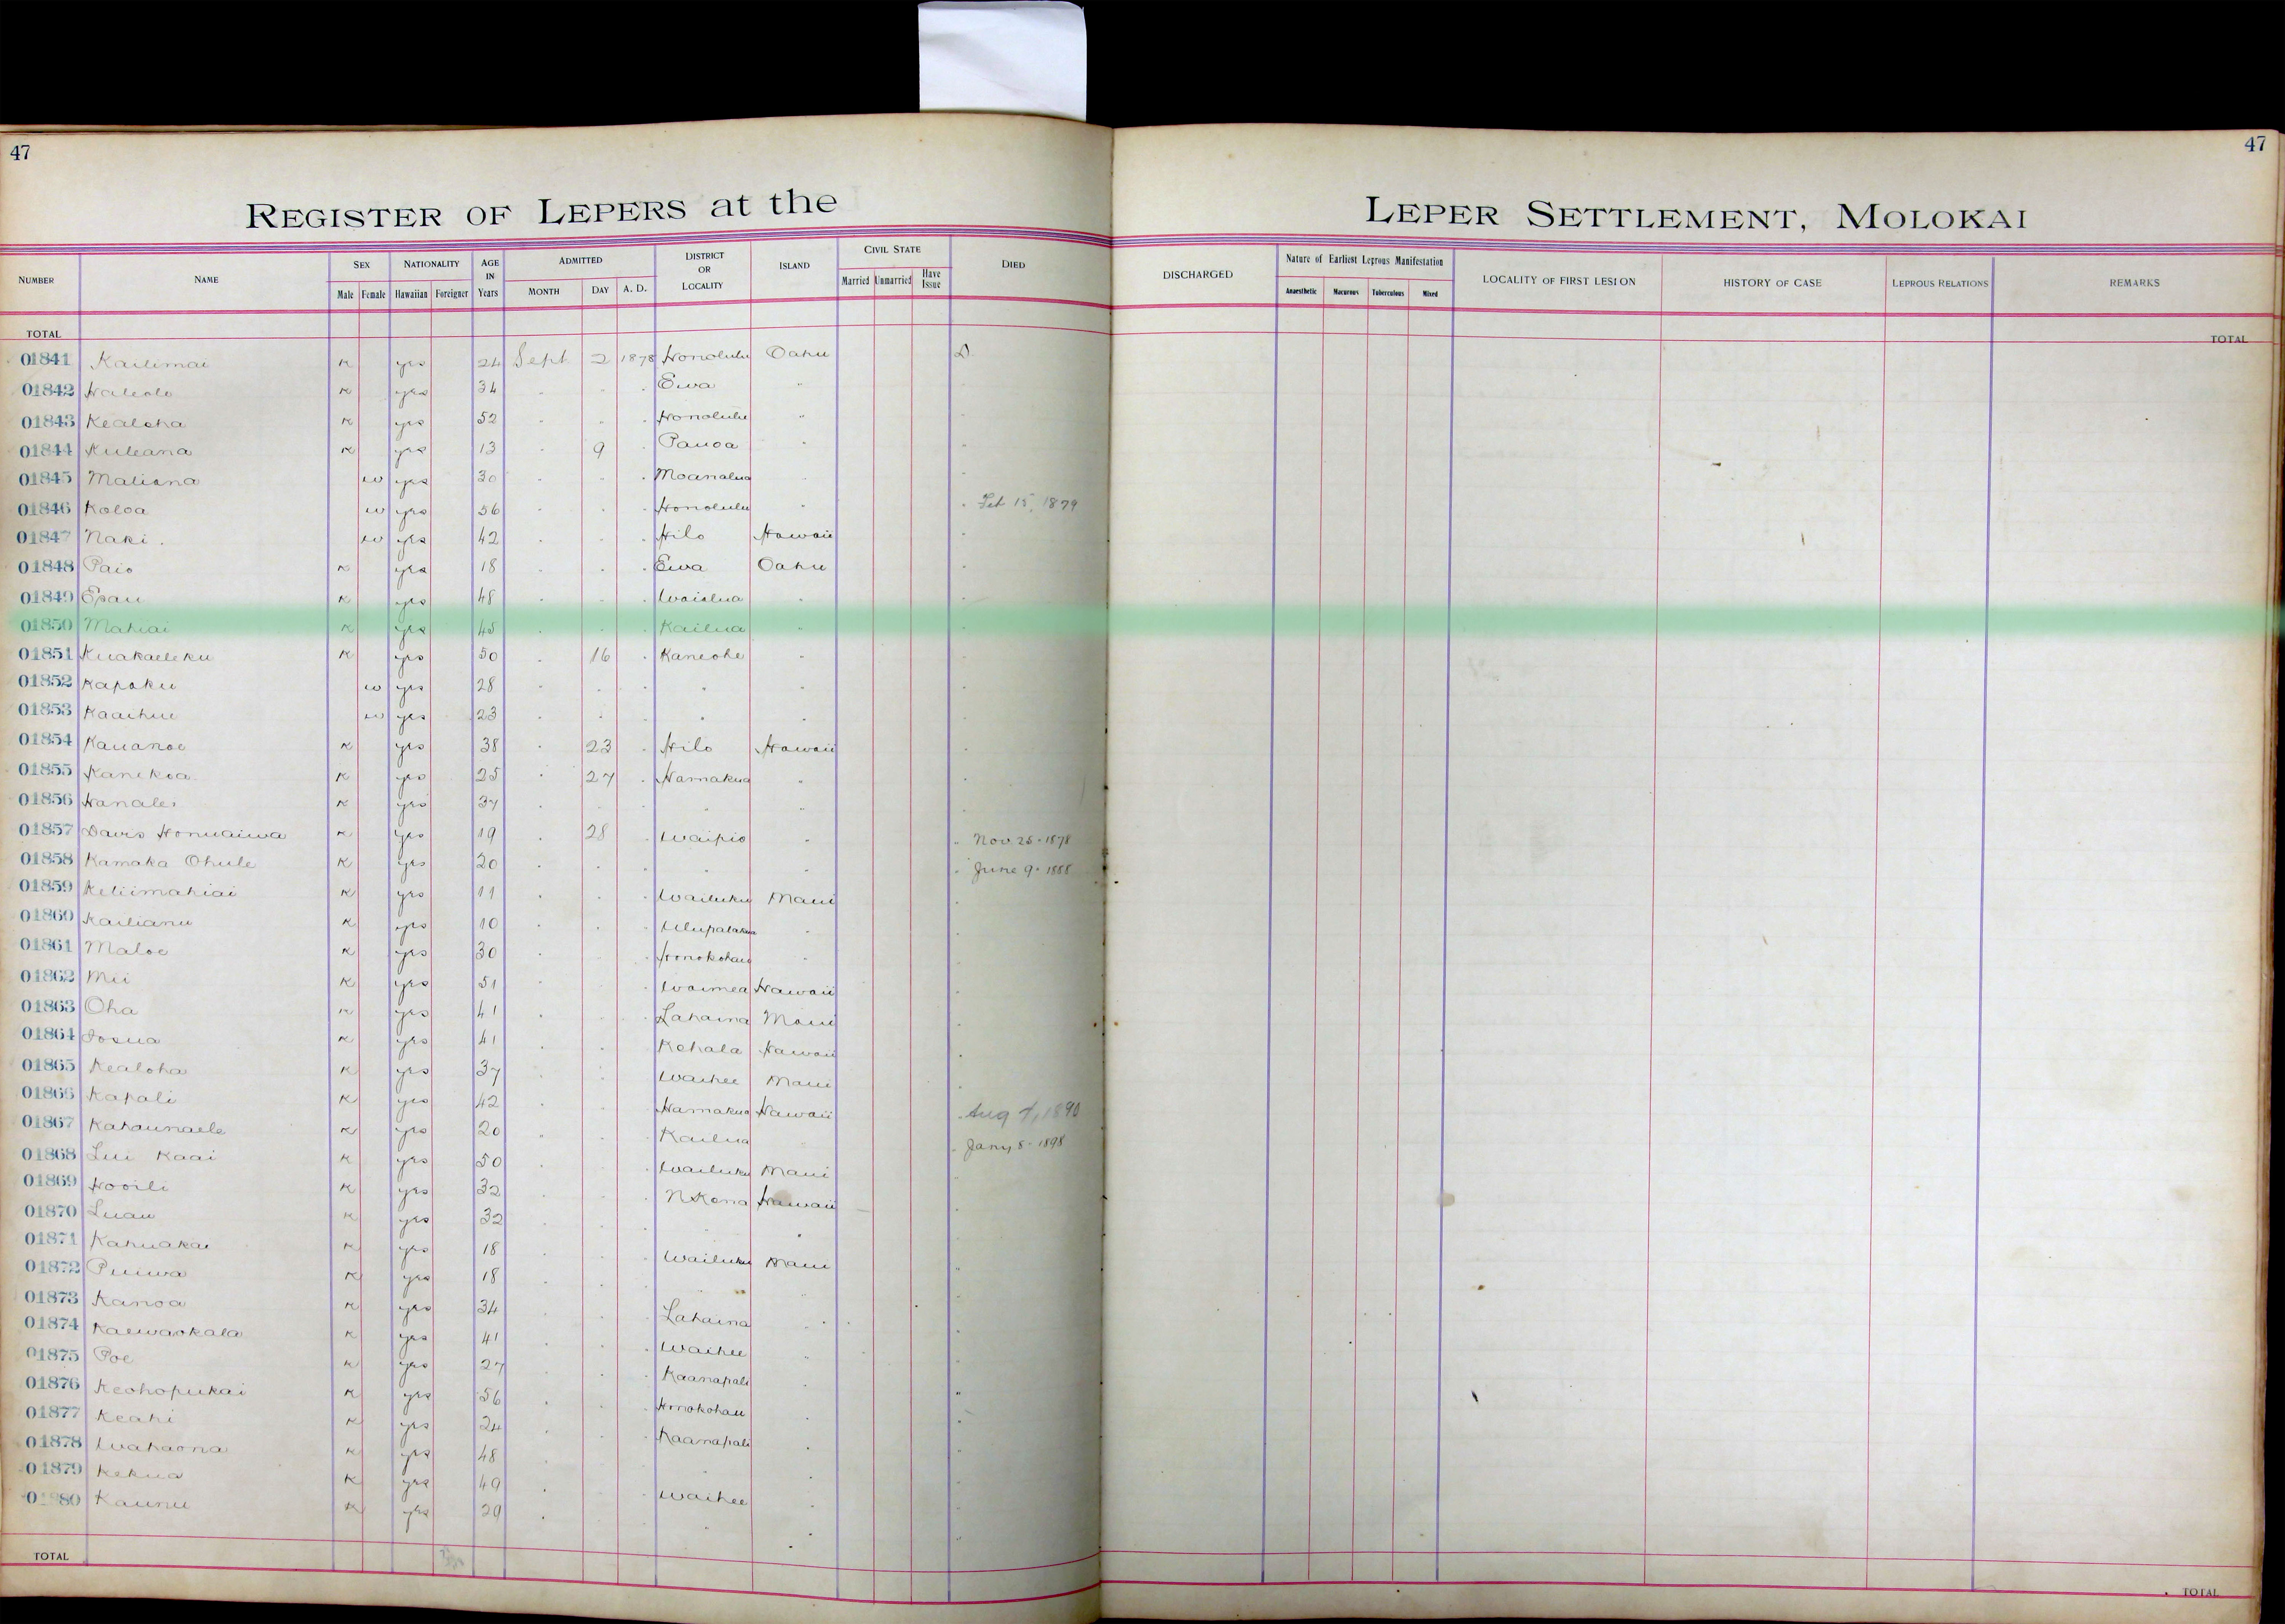 47
47
REGISTER OF LEPERS at the LEPER SETTLEMENT, MOLOKAI
NUMBER NAME SEX NATIONALITY AGE IN Years ADMITTED DISTRICT OR LOCALITY ISLAND CIVIL STATE DIED DISCHARGED Nature of Earliest Leprous Manifestation LOCALITY OF FIRST LESION HISTORY OF CASE LEPROUS RELATIONS REMARKS
Male Female Hawaiian Foreigner MONTH DAY A. D. Married Unmarried Have Issue Anaesthetic Macurous Tuberculous Mixed
TOTAL TOTAL
01841 Kailimai K yes 24 Sept 2 1878 Honolulu Oahu D
01842 Haleolo K yes 34 " " " Ewa "
01843 Kealoha K yes 52 " " " Honolulu "
01844 Kuleana K yes 13 " 9 " Pauoa " "
01845 Maliana w yes 30 " " " Moanalua " "
01846 Koloa w yes 56 " " " Honolulu " " Feb 15, 1879
01847 Naki w yes 42 " " " Hilo Hawaii "
01848 Paio K yes 18 " " " Ewa Oahu "
01849 Epau K yes 48 " " " Waialua " "
01850 Mahiai K yes 45 " " " Kailua " "
01851 Kuakaeleku K yes 50 " 16 " Kaneohe " "
01852 Kapoku w yes 28 " " " " " "
01853 Kaaihue w yes 23 " " " " " "
01854 Kauanoe K yes 38 " 23 " Hilo Hawaii "
01855 Kanekoa K yes 25 " 27 " Hamakua " "
01856 Hanalei K yes 37 " " " " " "
01857 Davis Honuaiwa K yes 19 " 28 " Waipio " " Nov 25 - 1878
01858 Kamaka Ohule K yes 20 " " " " " " June 9 - 1888
01859 Keliimahiai K yes 11 " " " Wailuku Maui "
01860 Kailianu K yes 10 " " " Ulupalakua " "
01861 Maloe K yes 30 " " " Honokohau " "
01862 Mii K yes 51 " " " Waimea Hawaii "
01863 Oha K yes 41 " " " Lahaina Maui "
01864 Iosua K yes 41 " " " Kohala Hawaii "
01865 Kealoha K yes 37 " " " Waihee Maui "
01866 Kapali K yes 42 " " " Hamakua Hawaii " Aug 7, 1890
01867 Kahaunaele K yes 20 " " " Kailua " Jany 8 - 1898
01868 Lui Kaai K yes 50 " " " Wailuku Maui "
01869 Hooili K yes 32 " " " N Kona Hawaii "
01870 Luau K yes 32 " " " " " "
01871 Kahuakai K yes 18 " " " Wailuku Maui "
01872 Puiwa K yes 18 " " " " " "
01873 Kanoa K yes 34 " " " Lahaina " "
01874 Kaewaokala K yes 41 " " " Waihee " "
01875 Poe K yes 27 " " " Kaanapali " "
01876 Keohopukai K yes 56 " " " Honokohau " "
01877 Keahi K yes 24 " " " Kaanapali " "
01878 Wahaona K yes 48 " " " " " "
01879 Kekua K yes 49 " " " Waihee " "
0 80 Kaunu K yes 29 " " " " " "
TOTAL TOTAL